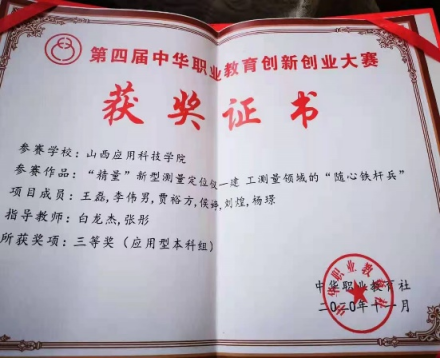 第四届中华职业教育创新创业大赛
获奖证书
参赛学校:山西应用科技学院
参赛作品:“精量”新型测量定位仪—建 工测量领域的“随心铁杆兵”
项目成员:王磊,李伟男,贾裕方,侯婷,刘煌,杨璟
指导教师:白龙杰,张彤
所获奖项:三等奖(应用型本科组)
中华职业教育社
二〇二〇年十一月